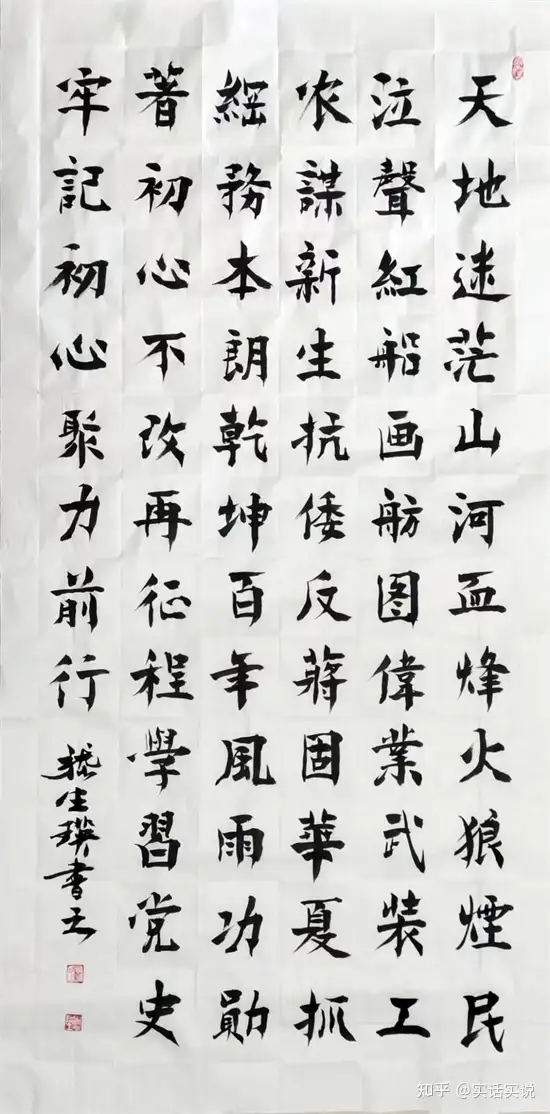 天地迷茫山河血烽火狼煙民
泣聲紅船画舫图偉業武装工
农謀新生抗倭反蔣固華夏抓
綱務本朗乾坤百年風雨功勛
著初心不改再征程學習党史
牢記初心聚力前行
生璞書之
知乎 @实话实说